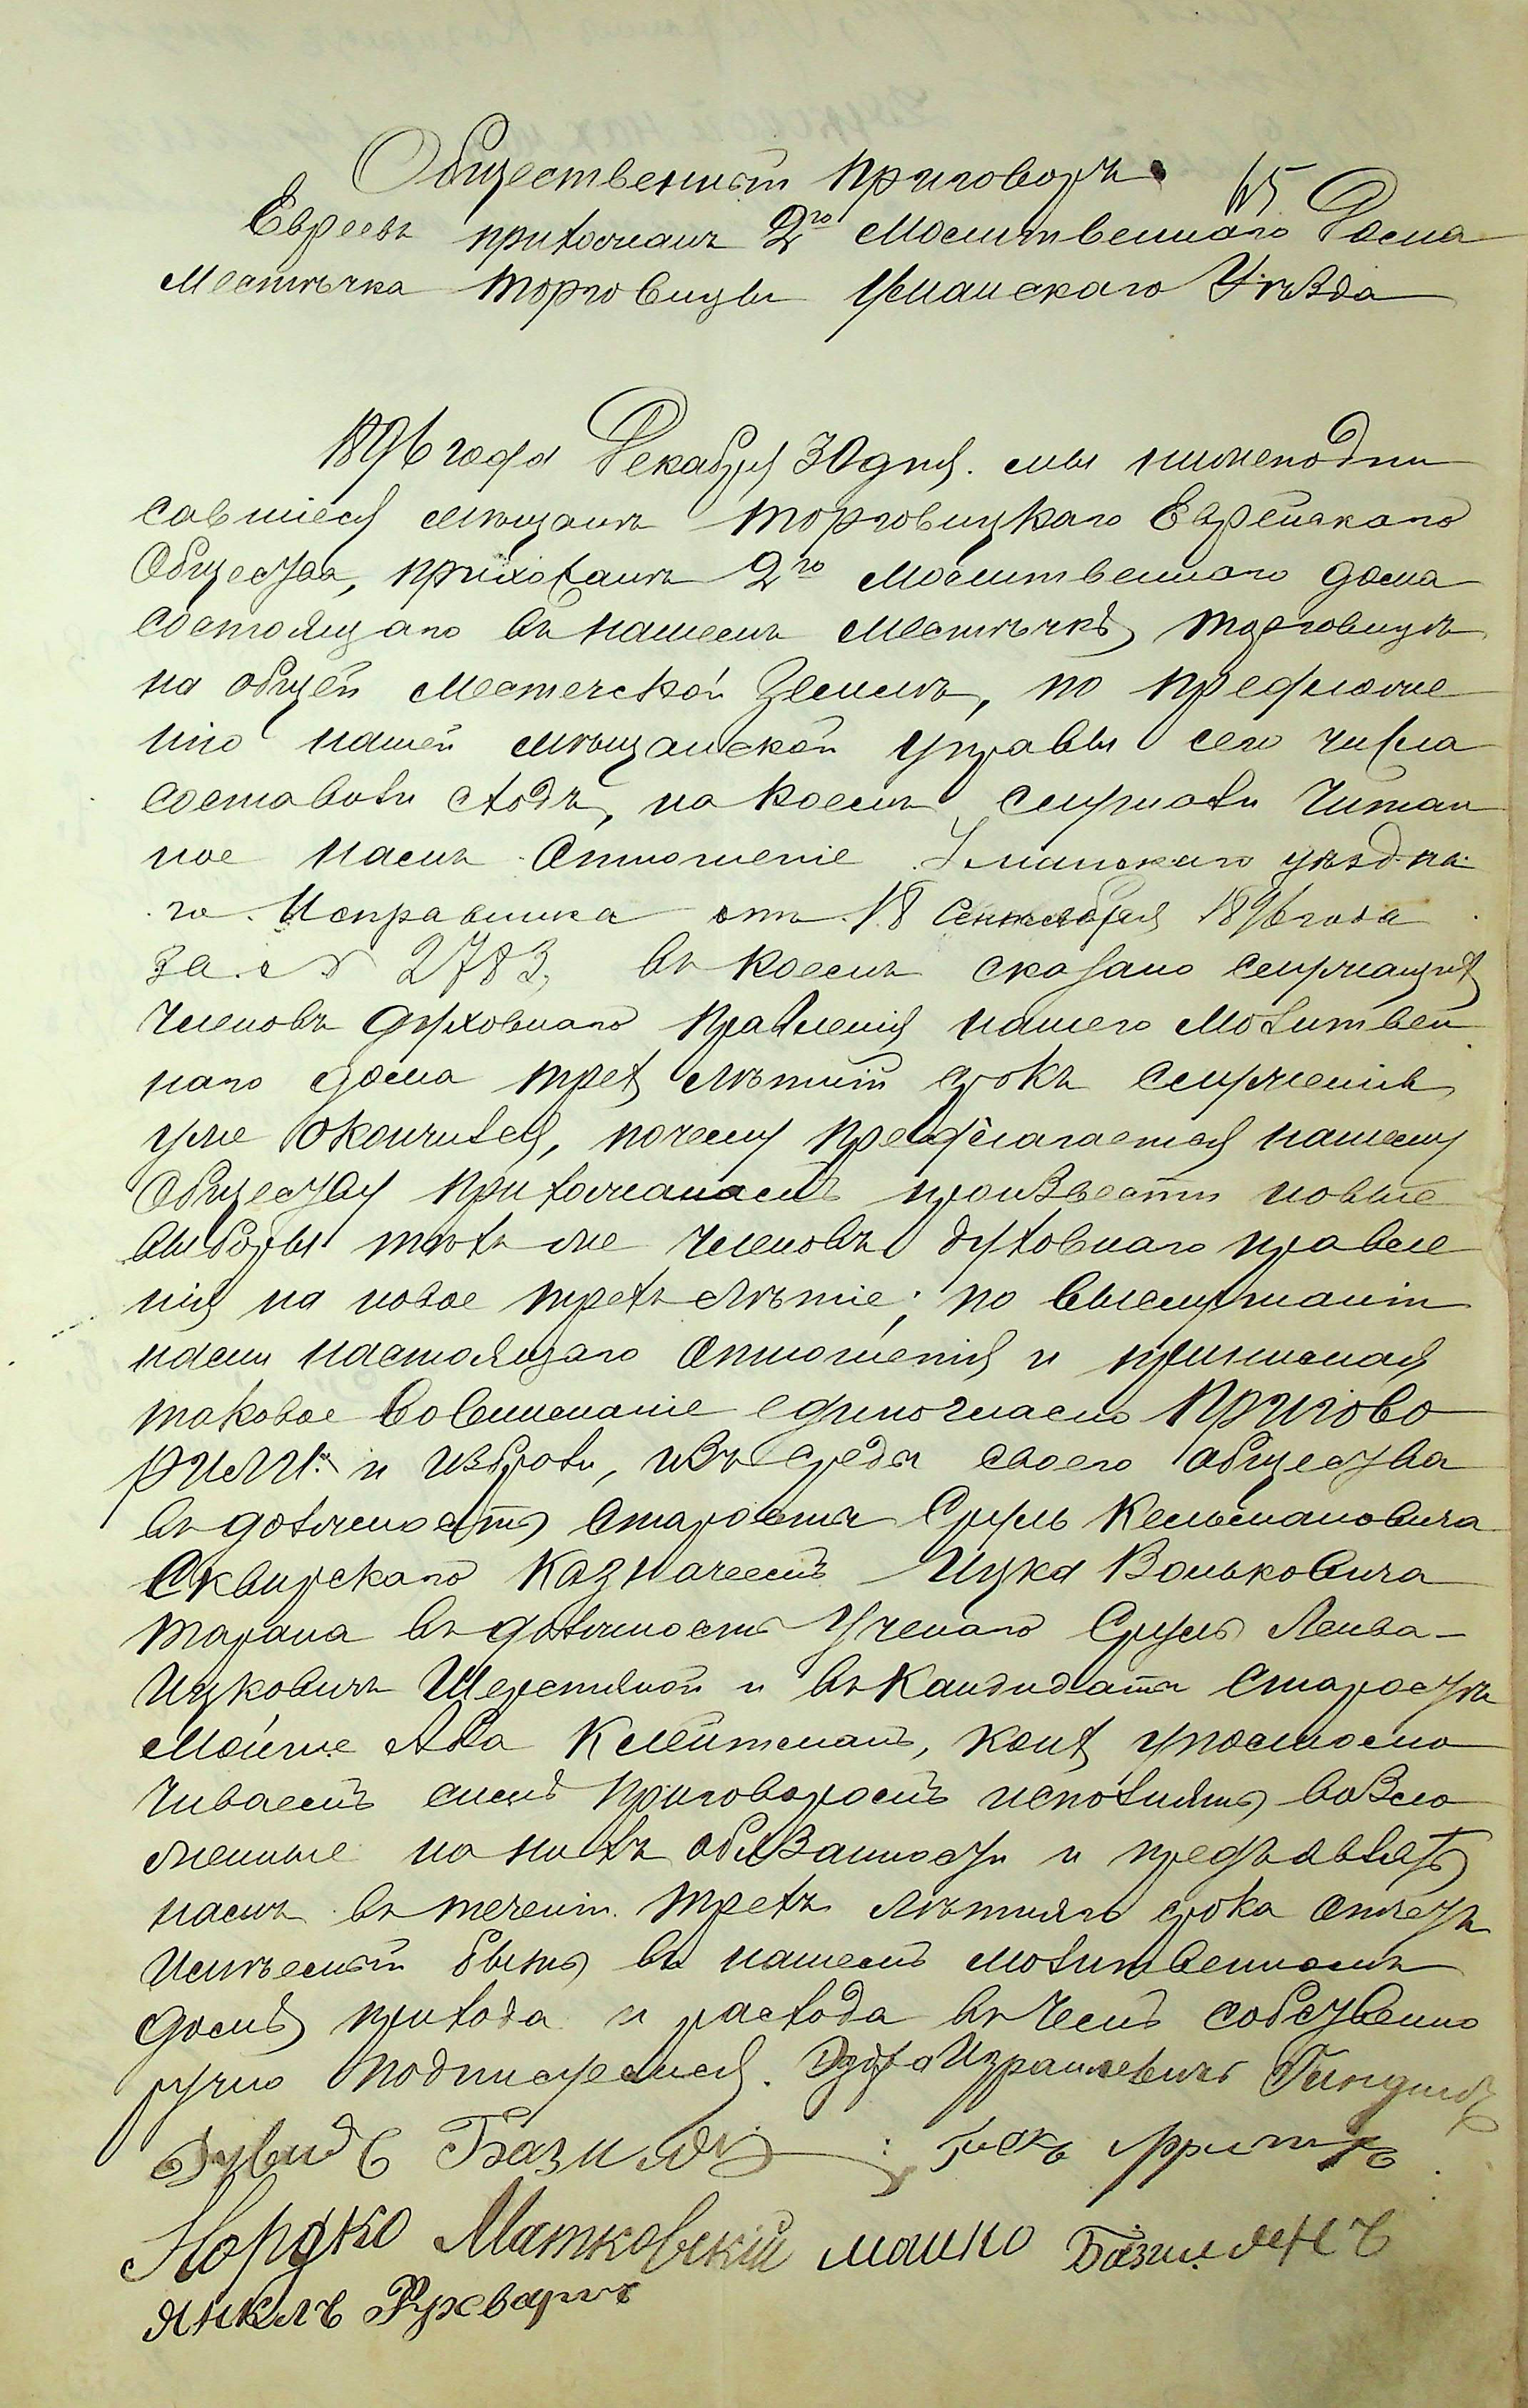 Общественный приговоръ
65
Евреевъ прихожанъ 2го Молитвеннаго Дома
Местѣчка Торговицы Уманскаго Уѣзда
1896 года Декабря 30 дня. мы нижеподпи
савшіеся мѣщанѣ Торговицкаго Еврейскаго
Общества, прихожанѣ 2го Молитвеннаго дома
состоящаго въ нашемъ Местѣчкѣ Торговицѣ
на общей Местечской Землѣ, по предложе
нію нашей мѣщанской управы сего числа
составови сходъ, на коемъ слушали читан
ное намъ Отношеніе Уманскаго уѣздна
го Исправника отъ 18 Сентября 1896 года
за № 2783, въ коемъ сказано служащихъ
Членовъ духовнаго Правленія нашего Молитвен
наго дома трехлѣтній срокъ служенія
уже окончился, почему предлагается нашему
Обществу прихожанамъ произвести новые
выборы тѣхъ же Членовъ духовнаго правле
нія на новое трехълѣтіе; по выслушаніи
нами настоящаго Отношенія и принимая
таковое во вниманіе единогласно Пригово
рили: и избрали, изъ среды своего общества
въ должность Старосты Сруль Кельмановича
Сквирскаго Казначеемъ Ицка Вольковича
Тарана въ должность Ученаго Сруль Лейба-
Ицковичъ Шерстяной и въ Кандидаты Старосты
Мойше Аба Клейтманъ, коихъ уполномо
чиваемъ симъ Приговоромъ исполнять возло
женные на нихъ обязанности и предъявлять
намъ въ теченіи трехълѣтняго срока отчетъ
Имѣемый быть въ нашемъ молитвенномъ
домѣ прихода и расхода въ чемъ собственно
ручно подписуемся. Израилевичъ
Дувидъ Базилян
Нордко Матковскій мошко Базилянъ
Янкель